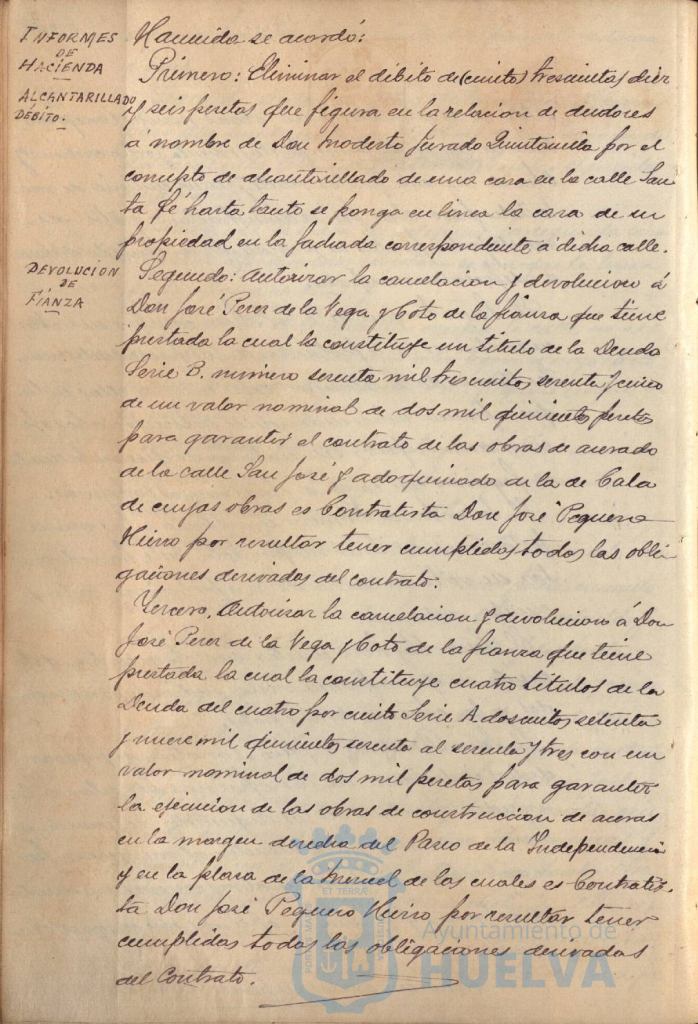 INFORMES
DE
HACIENDA
ALCANTARILLADO
DÉBITO.-
DEVOLUCION
DE
FIANZA
Hacienda se acordó:
Primero: Eliminar el débito de (ciento) trescientas diez
y seis pesetas que figura en la relacion de deudores
á nombre de Don Modesto Jurado Quintanilla por el
concepto de alcantarillado de una casa en la calle San
ta Fé hasta tanto se ponga en linea la casa de su
propiedad en la fachada correspondiente á dicha calle.
Segundo: Autorizar la cancelacion y devolucion á
Don José Perez de la Vega y Coto de la fianza que tiene
prestada la cual la constituye un titulo de la Deuda
Serie B. numero sesenta mil trescientos sesenta y cinco
de un valor nominal de dos mil quinientas pesetas
para garantir el contrato de las obras de acerado
de la calle San José y adoquinado de la de Cala
de cuyas obras es Contratista Don José Peguero
Hierro por resultar tener cumplidas todas las obli
gaciones derivadas del contrato.
Tercero. Autorizar la cancelacion y devolucion á Don
José Perez de la Vega y Coto de la fianza que tiene
prestada la cual la constituye cuatro titulos de la
Deuda del cuatro por ciento Serie A doscientos setenta
y nueve mil quinientos sesenta al sesenta y tres con un
valor nominal de dos mil pesetas para garantir
la ejecucion de las obras de construccion de aceras
en la margen derecha del Paseo de la Independencia
y en la plaza de la Merced de las cuales es Contratis-
ta Don José Peguero Hierro por resultar tener
cumplidas todas las obligaciones derivadas
del Contrato.
Ayuntamiento de
HUELVA